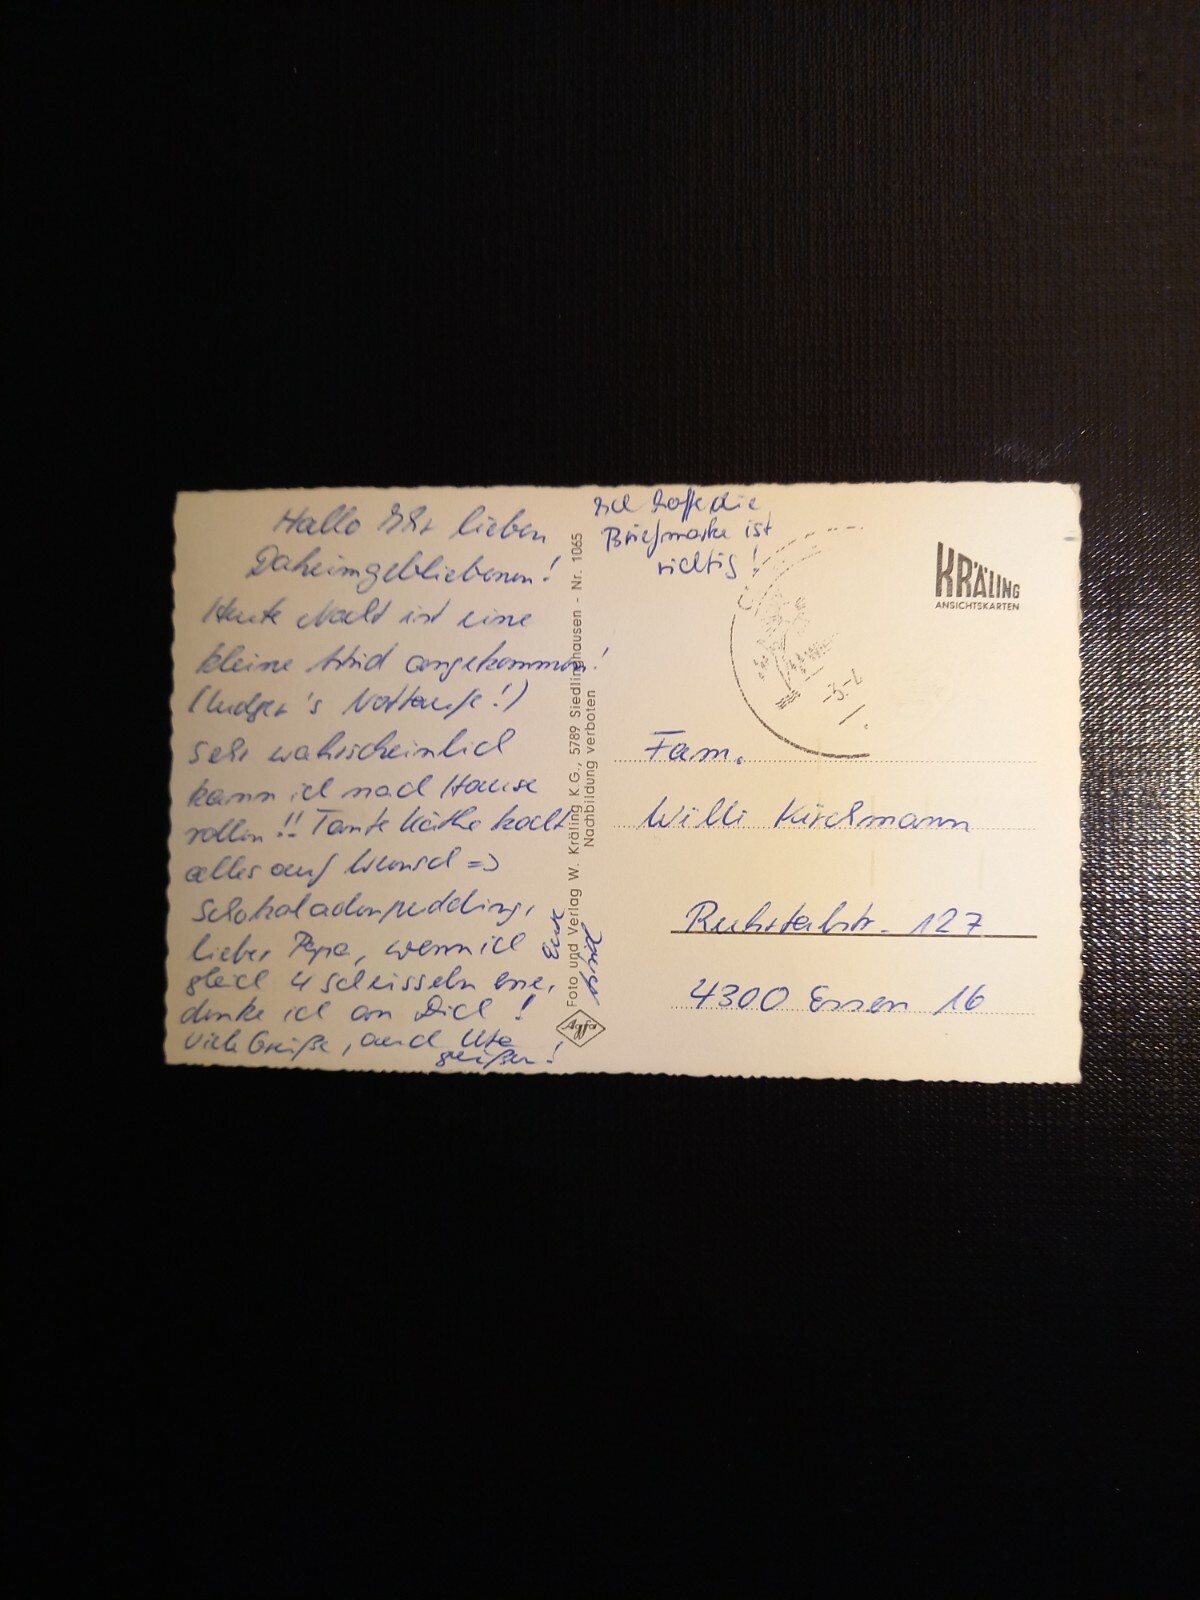 Hallo Ihr lieben
Daheimgebliebenen!
Heute Nacht ist eine
kleine angekommen!
(Ludger's Nottaufe!)
Sehr wahrscheinlich
kann ich nach Hause
rollen!! Tante Käthe kocht
alles auf Wunsch =>
Schokoladenpudding,
lieber Papa, wenn ich
gleich 4 Schüsseln esse,
denke ich an Dich!
Viele Grüße, auch Ute
grüßen!
Eure
Ich hoffe die
Briefmarke ist
richtig!
Foto und Verlag W. Kräling K.G., 5789 Siedlinghausen - Nr. 1065
Nachbildung verboten
Agfa
KRÄLING
ANSICHTSKARTEN
-3.-2
Fam.
Willi Kirchmann
Ruhrtalstr. 127
4300 Essen 16